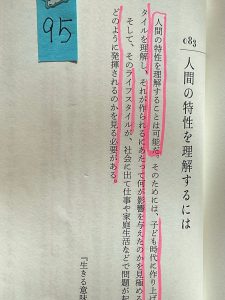 95
083
人間の特性を理解するには
人間の特性を理解することは可能だ。そのためには、子ども時代に作り上げ
タイルを理解し、それが作られるにあたって何が影響を与えたのかを見極める
そして、そのライフスタイルが、社会に出て仕事や家庭生活などで問題が起
どのように発揮されるのかを見る必要がある。
『生きる意味